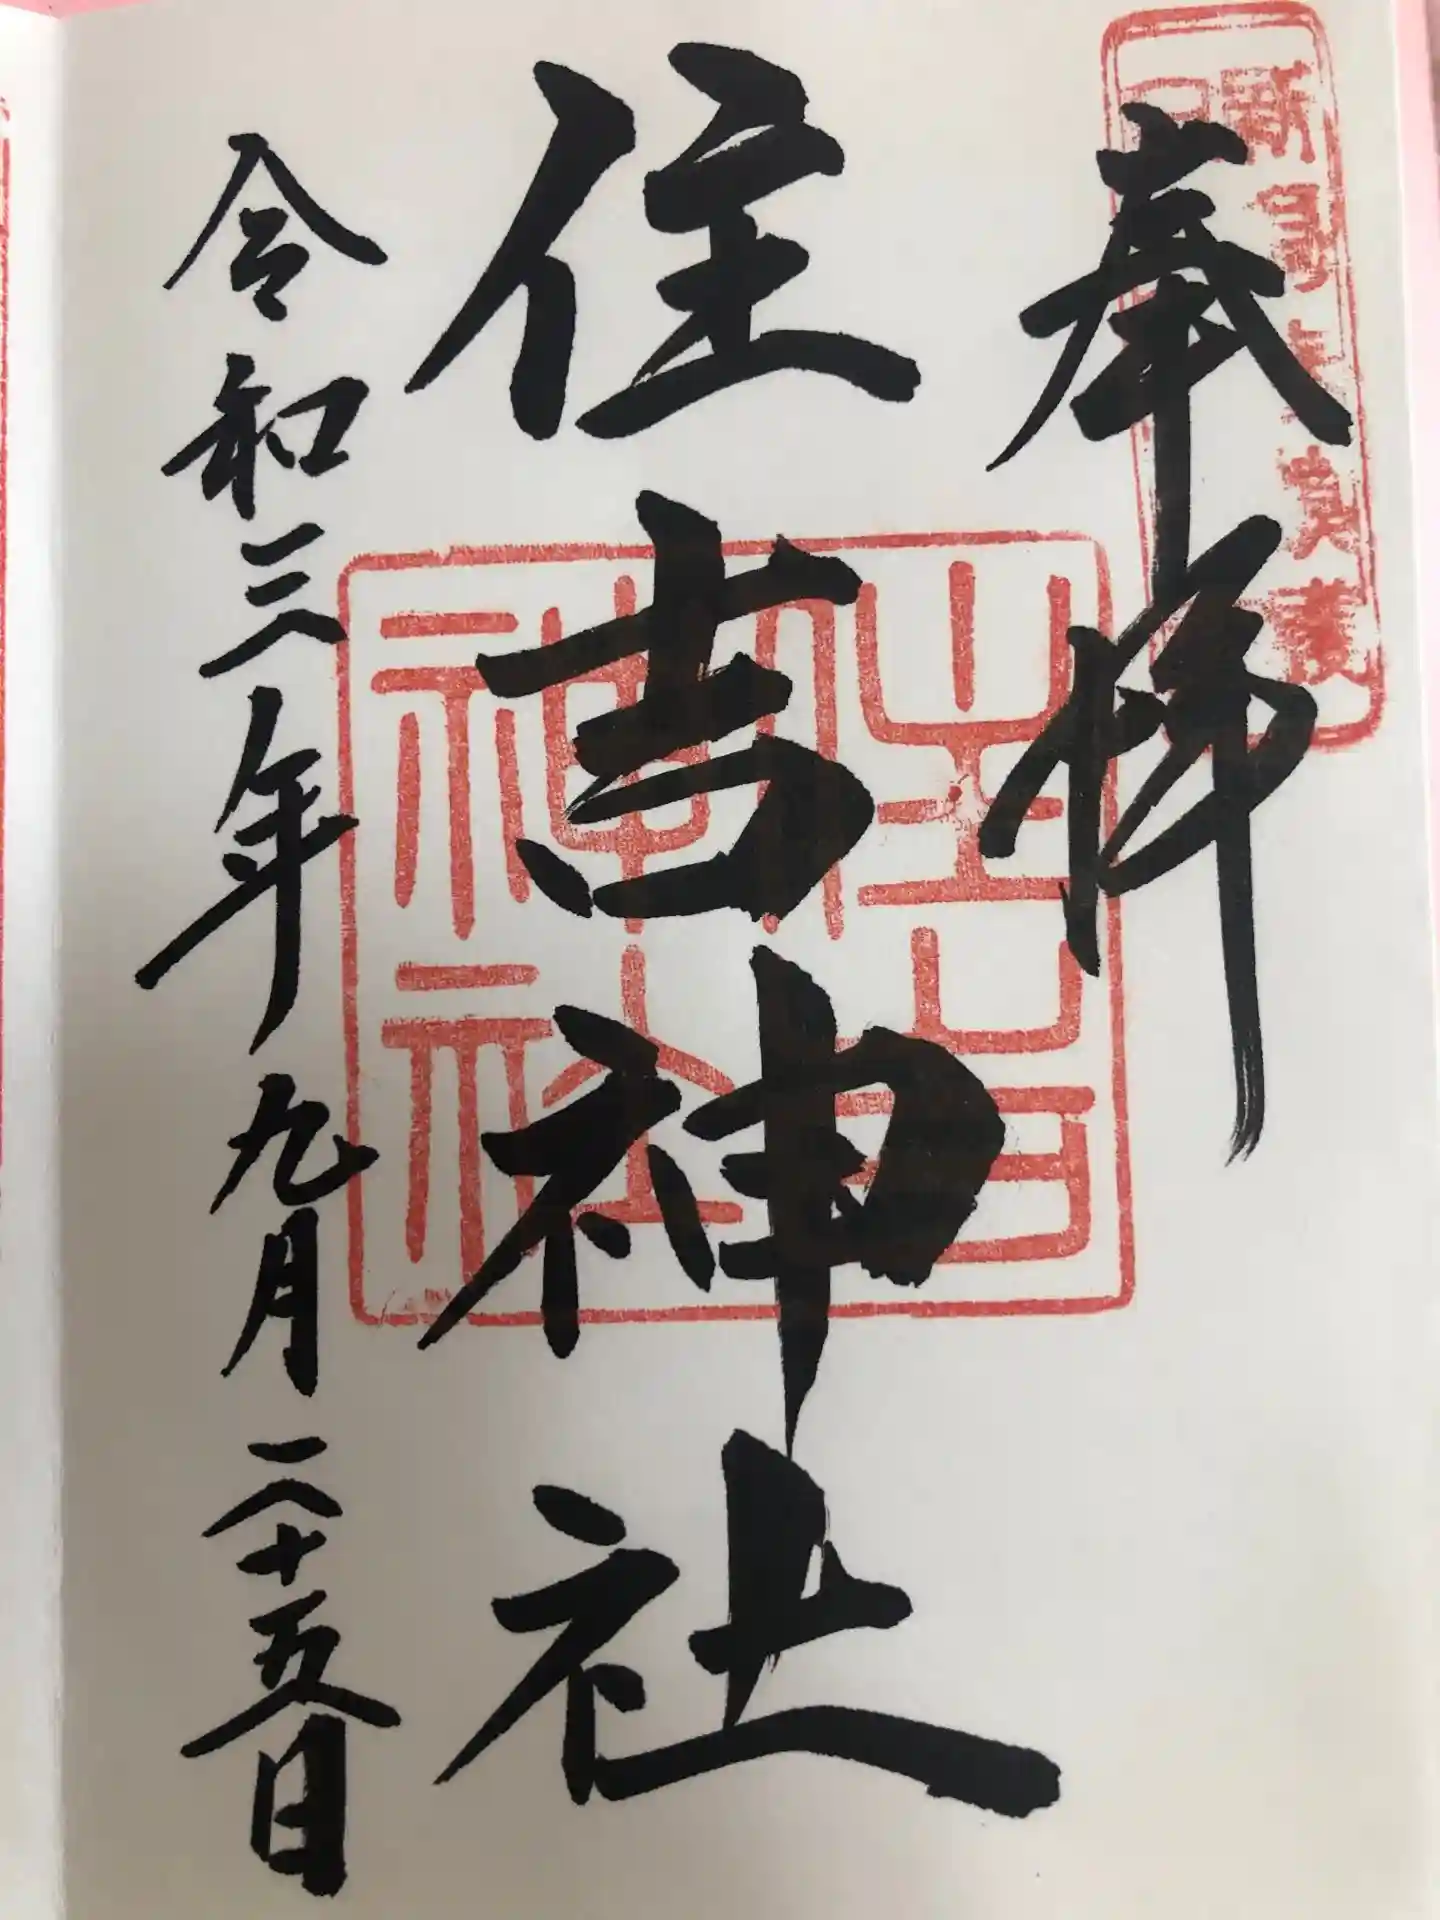 奉拝
住吉神社
住吉神社
令和三年九月二十五日